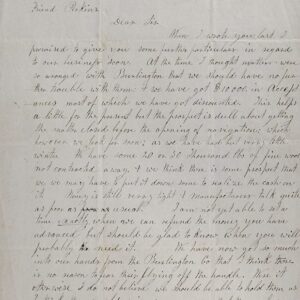 Friend Perkins
Dear Sir
When I wrote you last I
promised to give you some further particulars in regard
to our business soon. At the time I thought matters were
so arranged with Burlington that we should have no fur
ther trouble with them & we have got $10.000 in Accept
ances most of which we have got discounted. This helps
a little for the present but the prospect is dull about getting
the matter closed before the opening of navigation, which
however we look for soon, as we have had but very little
winter. We have some 20 or 30 Thousand lbs of fine wool
not contracted away & we think there is some prospect that
we may have to put it down some to realize the cash on
it. Money is still very tight & manufacturers talk quite
as poor as usual. I am not able to say
time exactly when we can refund the money you have
advanced but should be glad to know when you will
probably need it. We have now got so much
into our hands from the Burlington Co that I think there
is no reason to fear their flying off the handle. Were it
otherwise I do not believe we should be able to hold them as